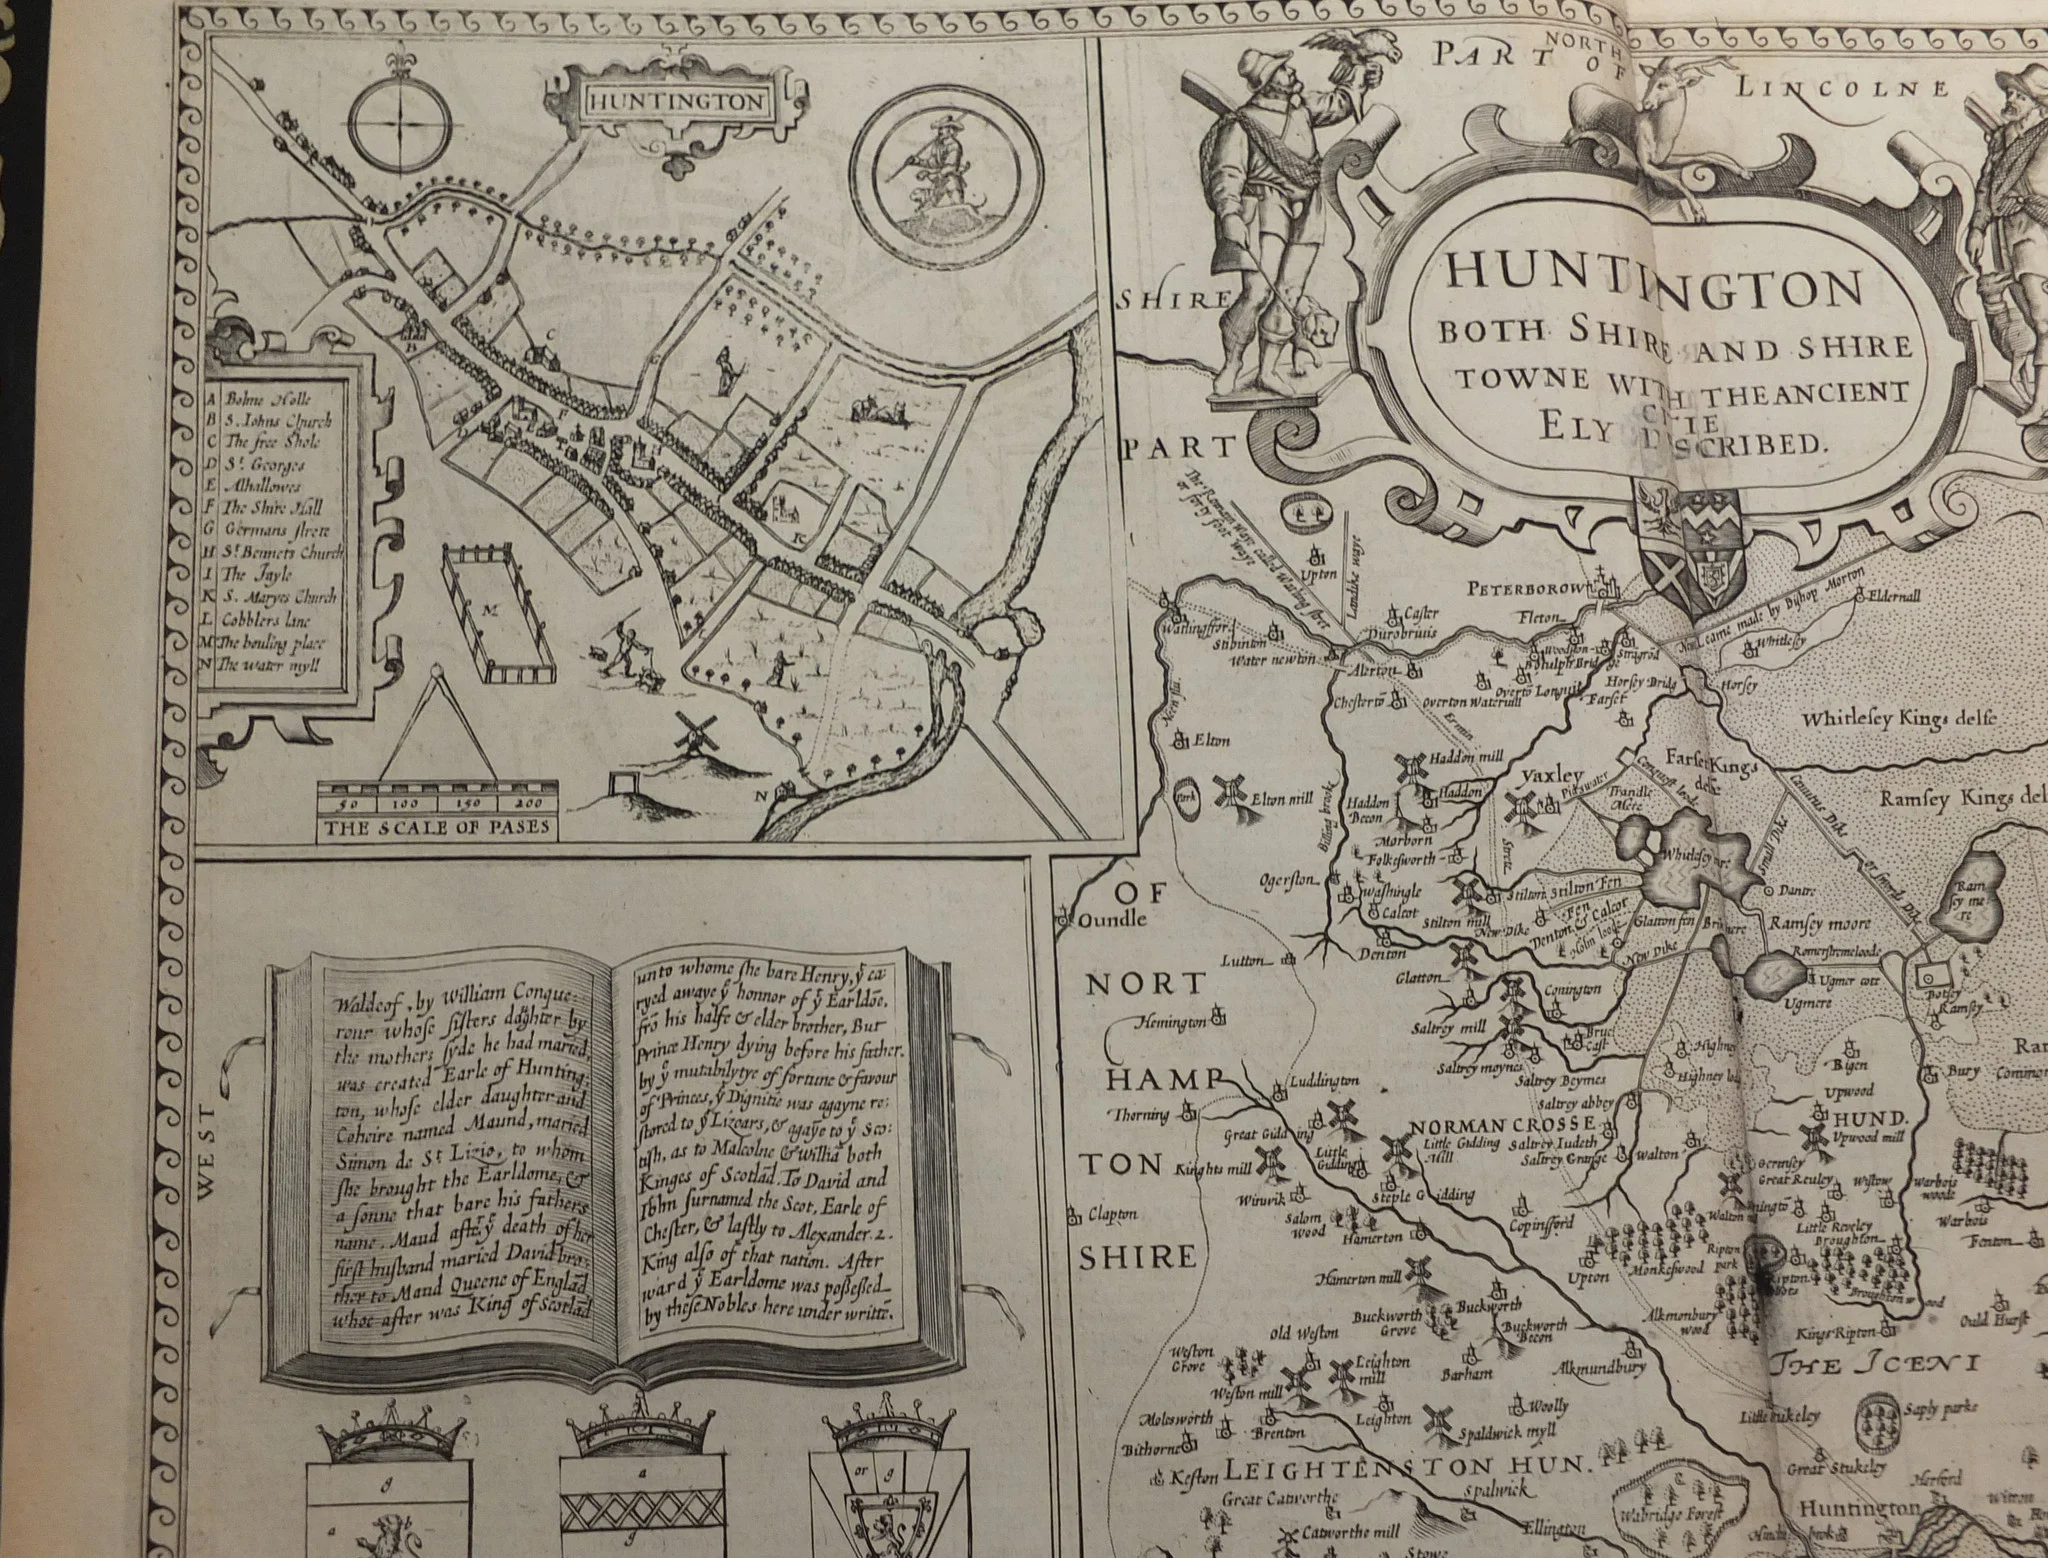 HUNTINGTON
A Bolme Holle
B S. Iohns Church
C The free Shole
D St. Georges
E Alhallowes
F The Shire Hall
G Germans strete
H St Bennets Church
I The Jayle
K S. Maryes Church
L Cobblers lane
M The bouling place
N The water myll
B
C
D
F
G
K
L
M
N
50 100 150 200
THE SCALE OF PASES
WEST
Waldeof, by William Conque:
rour whose sisters daughter by
the mothers syde he had maried,
was created Earle of Hunting:
ton, whose elder daughter and
Coheire named Maund, maried
Simon de St Lizio, to whom
she brought the Earldome, &
a sonne that bare his fathers
name. Maud after ye death of her
first husband maried David bro:
ther to Maud Queene of Englād
whoe after was King of Scotlād
unto whome she bare Henry, ye ca
ryed awaye ye honnor of ye Earldōe,
frō his halfe & elder brother, But
Prince Henry dying before his father.
by ye mutabilytye of fortune & favour
of Princes, ye Dignitie was agayne re:
stored to ye Lizears, & agaye to ye Sco:
tish, as to Malcolne & williā both
Kinges of Scotlād. To David and
Iohn surnamed the Scot. Earle of
Chester, & lastly to Alexander. 2.
King also of that nation. After
ward ye Earldome was possessed
by these Nobles here under writtē.
g
a
a
g
or g
NORTH
PART OF
LINCOLNE
SHIRE
HUNTINGTON
BOTH SHIRE AND SHIRE
TOWNE WITH THE ANCIENT
CITIE
ELY DISCRIBED.
PART
OF
NORT
HAMP
TON
SHIRE
The Roman Waye called Watling stret
or forty foot waye
Landike waye
Upton
PETERBOROW
Caster
Durobruis
Fleton
Eldernall
Noe came made by Byshop Morton
Whitlesey
Stibinton
Water newton
Alerton
Woodston
Horsey Bridg
Horsey
Chestertō
Overton Watervill
Farset
Whitlesey Kings delfe
Neen flu.
Ermin
Strete
Elton
Park
Elton mill
Haddon mill
Haddon
Haddon
Becon
Billing brooke
Yaxley
Conquest loode
Trandle
Mere
Farset Kings
delfe
Ramsey Kings del
Canutus Dike
or Swords Dike
Small Dike
Morborn
Folkesworth
Ogerston
Washingle
Calcot
Stilton mill
Stilton
Stilton Fen
Fen
Denton & Calcot
Holm loode
New Dike
Whitlesey mere
Dantre
Glatton fen
Ramsey moore
Ramsey mere
Romerstremeloode
Oundle
Lutton
Denton
Glatton
New Dike
Ugmer cote
Ugmere
Botsey
Ramsey
Conington
Hemington
Saltrey mill
Bruce
Cast
Saltrey moynes
Saltrey Beymes
Bigen
Upwood
Bury
Luddington
Saltrey abbey
Thorning
NORMAN CROSSE
HUND.
Upwood mill
Great Gidding
Little Gidding
Mill
Saltrey Iudeth
Saltrey Grange
Walton
Little
Gidding
Knights mill
Winwik
Steple Gidding
Great Reuley
Wistow
Warbois
woode
Warbois
Clapton
Salom
Wood
Hamerton
Copinsford
Little Reveley
Broughton
Fenton
Upton
Monkeswood
Ripton
park
Broughton wood
Hamerton mill
Buckworth
Grove
Buckworth
Buckworth
Becon
Alkmonbury
wood
Kings Ripton
Ould Hurst
Weston
Grove
Old Weston
Leighton
mill
Barham
Alkmundbury
THE ICENI
Weston mill
Molesworth
Bithorne
Brenton
Leighton
Woolly
Spaldwick myll
Little stukeley
Saply parke
Keston
LEIGHTENSTON HUN.
Spalwick
Great Stukeley
Great Catworthe
Catworthe mill
Stowe
Ellington
Wabridge Forest
Huntington
Herford
Witton